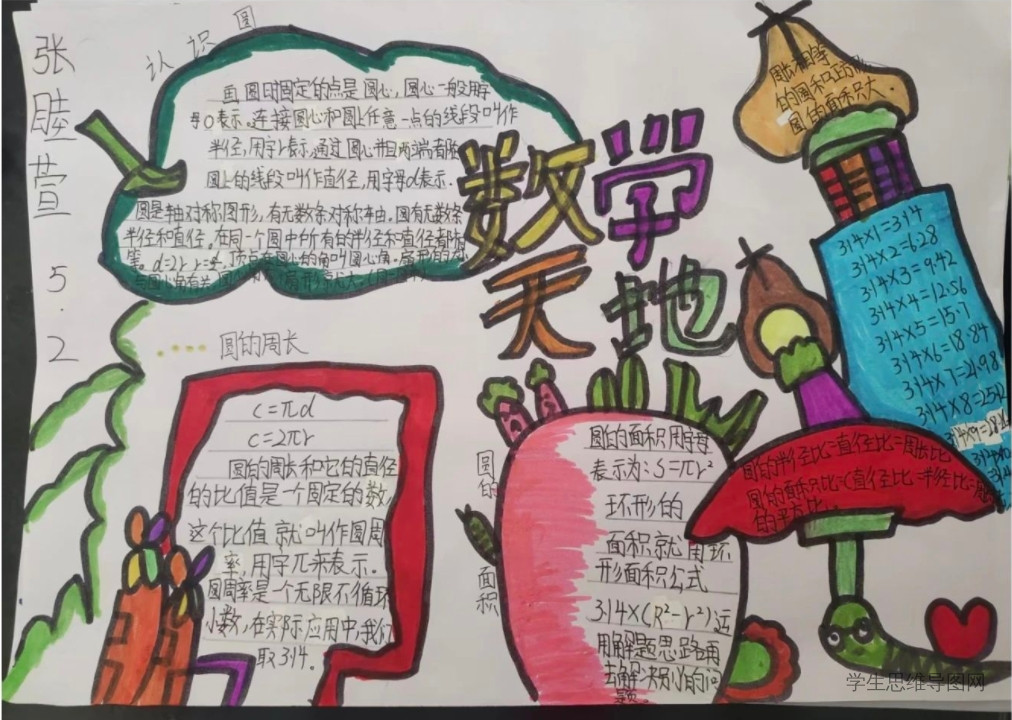 张
睦
萱
5.2
认识圆
画圆时固定的点是圆心,圆心一般用字
母O表示。连接圆心和圆上任意一点的线段叫作
半径,用字r表示,通过圆心并且两端都在
圆上的线段叫作直径,用字母d表示.
圆是轴对称图形,有无数条对称轴.圆有无数条
半径和直径,在同一个圆中所有的半径和直径都相
等。d=2r
数学
天地
圆的周长
C=πd
C=2πr
圆的周长和它的直径
的比值是一个固定的数,
这个比值就叫作圆周
率,用字π来表示.
圆周率是一个无限不循环
小数,在实际应用中,我们
取3.14.
圆的面积
圆的面积用字母
表示为:S=πr²
环形的
面积就用环
形面积公式
3.14×(R²-r²)运
用解题思路再
去解决别的问
题
周长相等
的圆和正方形
圆的面积大
3.14×1=3.14
3.14×2=6.28
3.14×3=9.42
3.14×4=12.56
3.14×5=15.7
3.14×6=18.84
3.14×7=21.98
3.14×8=25.12
3.14×9=28.26
圆的半径比=直径比=周长比
圆的面积比=(直径比=半径比=周
的平方比.
学生思维导图网